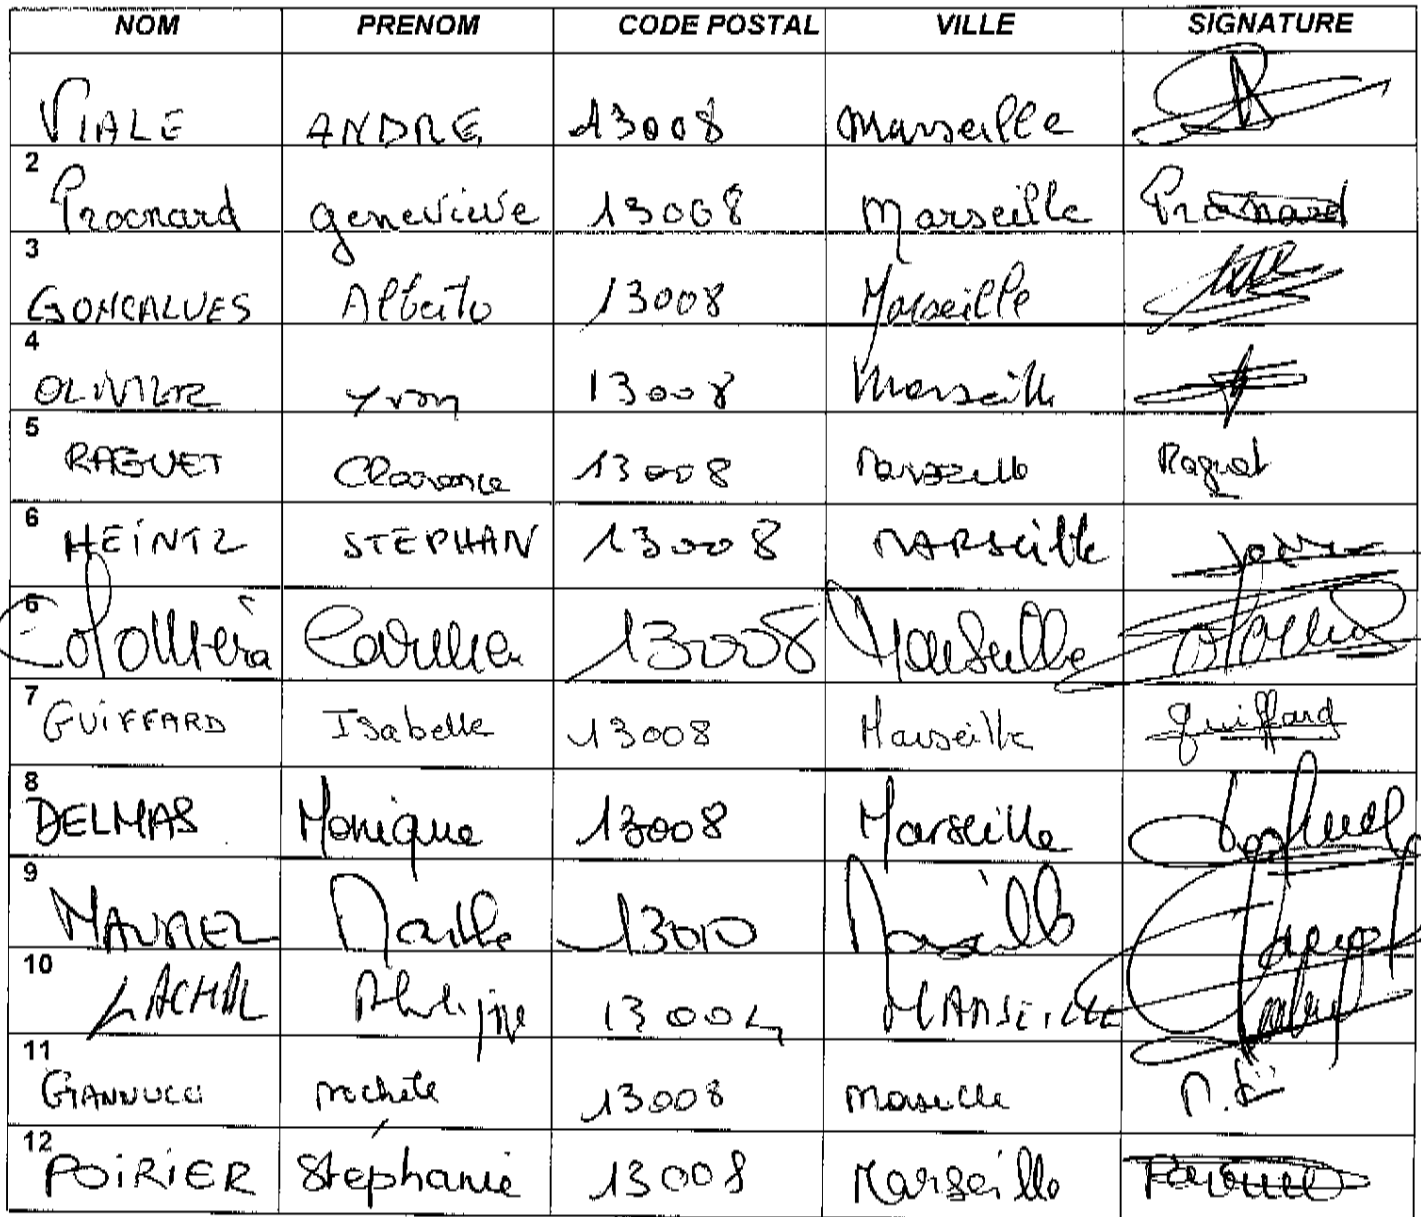 NOM PRENOM CODE POSTAL VILLE SIGNATURE
VIALE ANDRE 13008 Marseille
2 Procnard geneviève 13008 Marseille
3 GONCALVES Alberto 13008 Marseille
4 OLIVIER yvon 13008 Marseille
5 RAGUET Clarance 13008 Marseille Raguet
6 HEINTZ STEPHAN 13008 MARSEille
6 13008 Marseille
7 GUIFFARD Isabelle 13008 Marseille guiffard
8 DELMAS Monique 13008 Marseille
9 13010 Marseille
10 LACHAL Philippe 13004 MARSEILLE
11 GIANNUCCI Michele 13008 Marseille
12 POIRIER Stéphanie 13008 Marseille